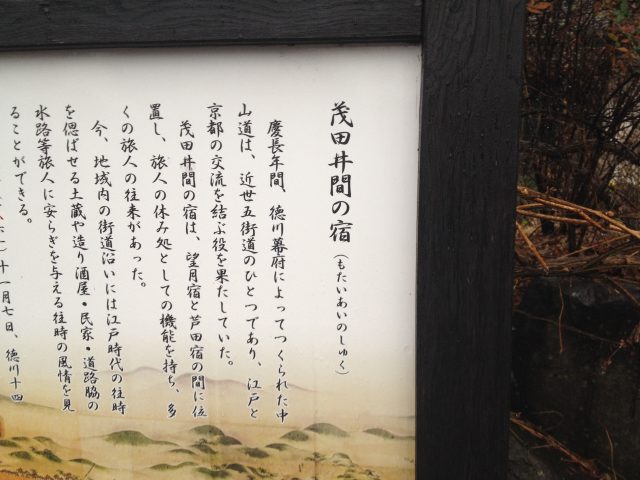 茂田井間の宿(もたいあいのしゅく)
慶長年間、徳川幕府によってつくられた中
山道は、近世五街道のひとつであり、江戸と
京都の交流を結ぶ役を果たしていた。
茂田井間の宿は、望月宿と芦田宿の間に位
置し、旅人の休み処としての機能を持ち、多
くの旅人の往来があった。
今、地域内の街道沿いには江戸時代の往時
を偲ばせる土蔵や造り酒屋・民家・道路脇の
水路等旅人に安らぎを与える往時の風情を見
ることができる。
十一月七日、徳川十四